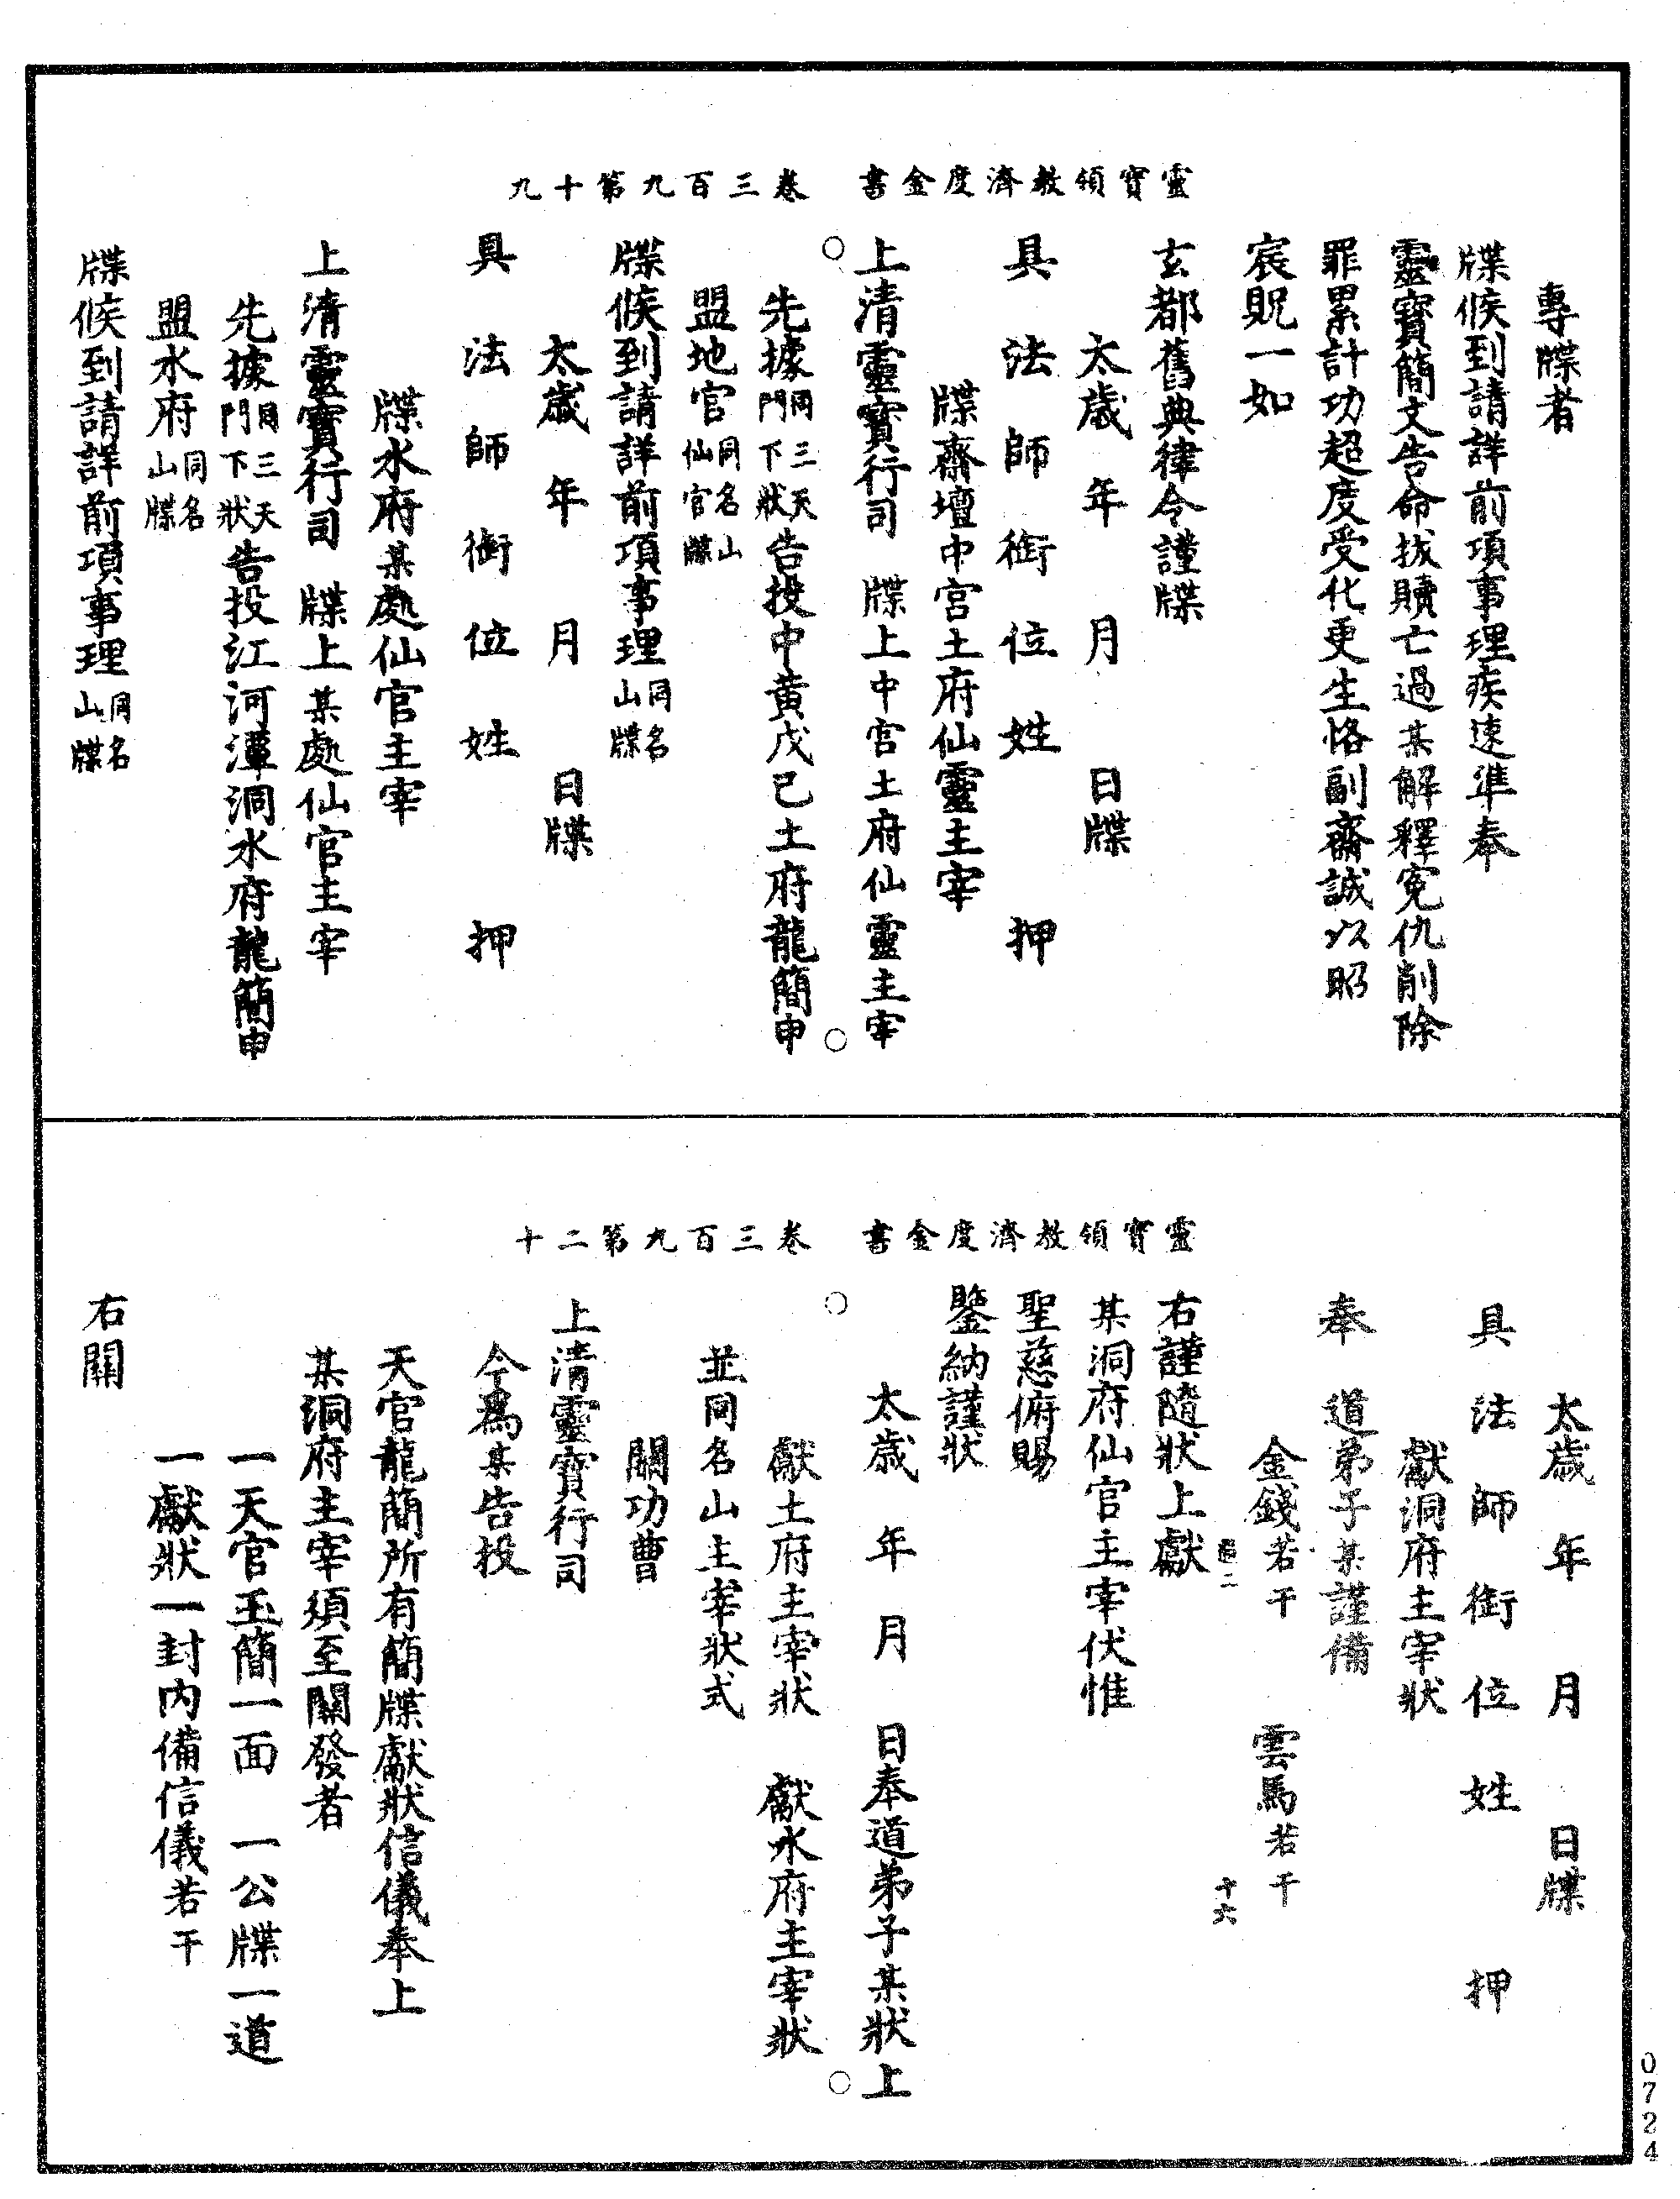 靈寶領教濟度金書　卷三百九第十九
專牒者
牒候到請詳前項事理疾速準奉
靈寶簡文告命拔贖亡過某解釋寃仇削除
罪累計功超度受化更生恪副齋誠以昭
宸貺一如
玄都舊典律令謹牒
太歲　年　月　日牒
具法師銜位姓　押
牒齋壇中宮土府仙靈主宰
上清靈寶行司　牒上中宮土府仙靈主宰
先據同三天門下狀告投中黃戊己土府龍簡申
盟地官同名山仙官牒
牒候到請詳前項事理同名山牒
太歲　年　月　日牒
具法師銜位姓　押
牒水府某處仙官主宰
上清靈寶行司　牒上某處仙官主宰
先據同三天門下狀告投江河潭洞水府龍簡申
盟水府同名山牒
牒候到請詳前項事理同名山牒
靈寶領教濟度金書　卷三百九第二十
太歲　年　月　日牒
具法師銜位姓　押
獻洞府主宰狀
奉　道弟子某謹備
金錢若干　雲馬若干
二　十六
右謹隨狀上獻
某洞府仙官主宰伏惟
聖慈俯賜
鑒納謹狀
太歲　年　月　日奉道弟子某狀上
獻土府主宰狀　獻水府主宰狀
並同名山主宰狀式
關功曹
上清靈寶行司
今爲某告投
天官龍簡所有簡牒獻狀信儀奉上
某洞府主宰須至關發者
一天官玉簡一面　一公牒一道
一獻狀一封内備信儀若干
右關
0724